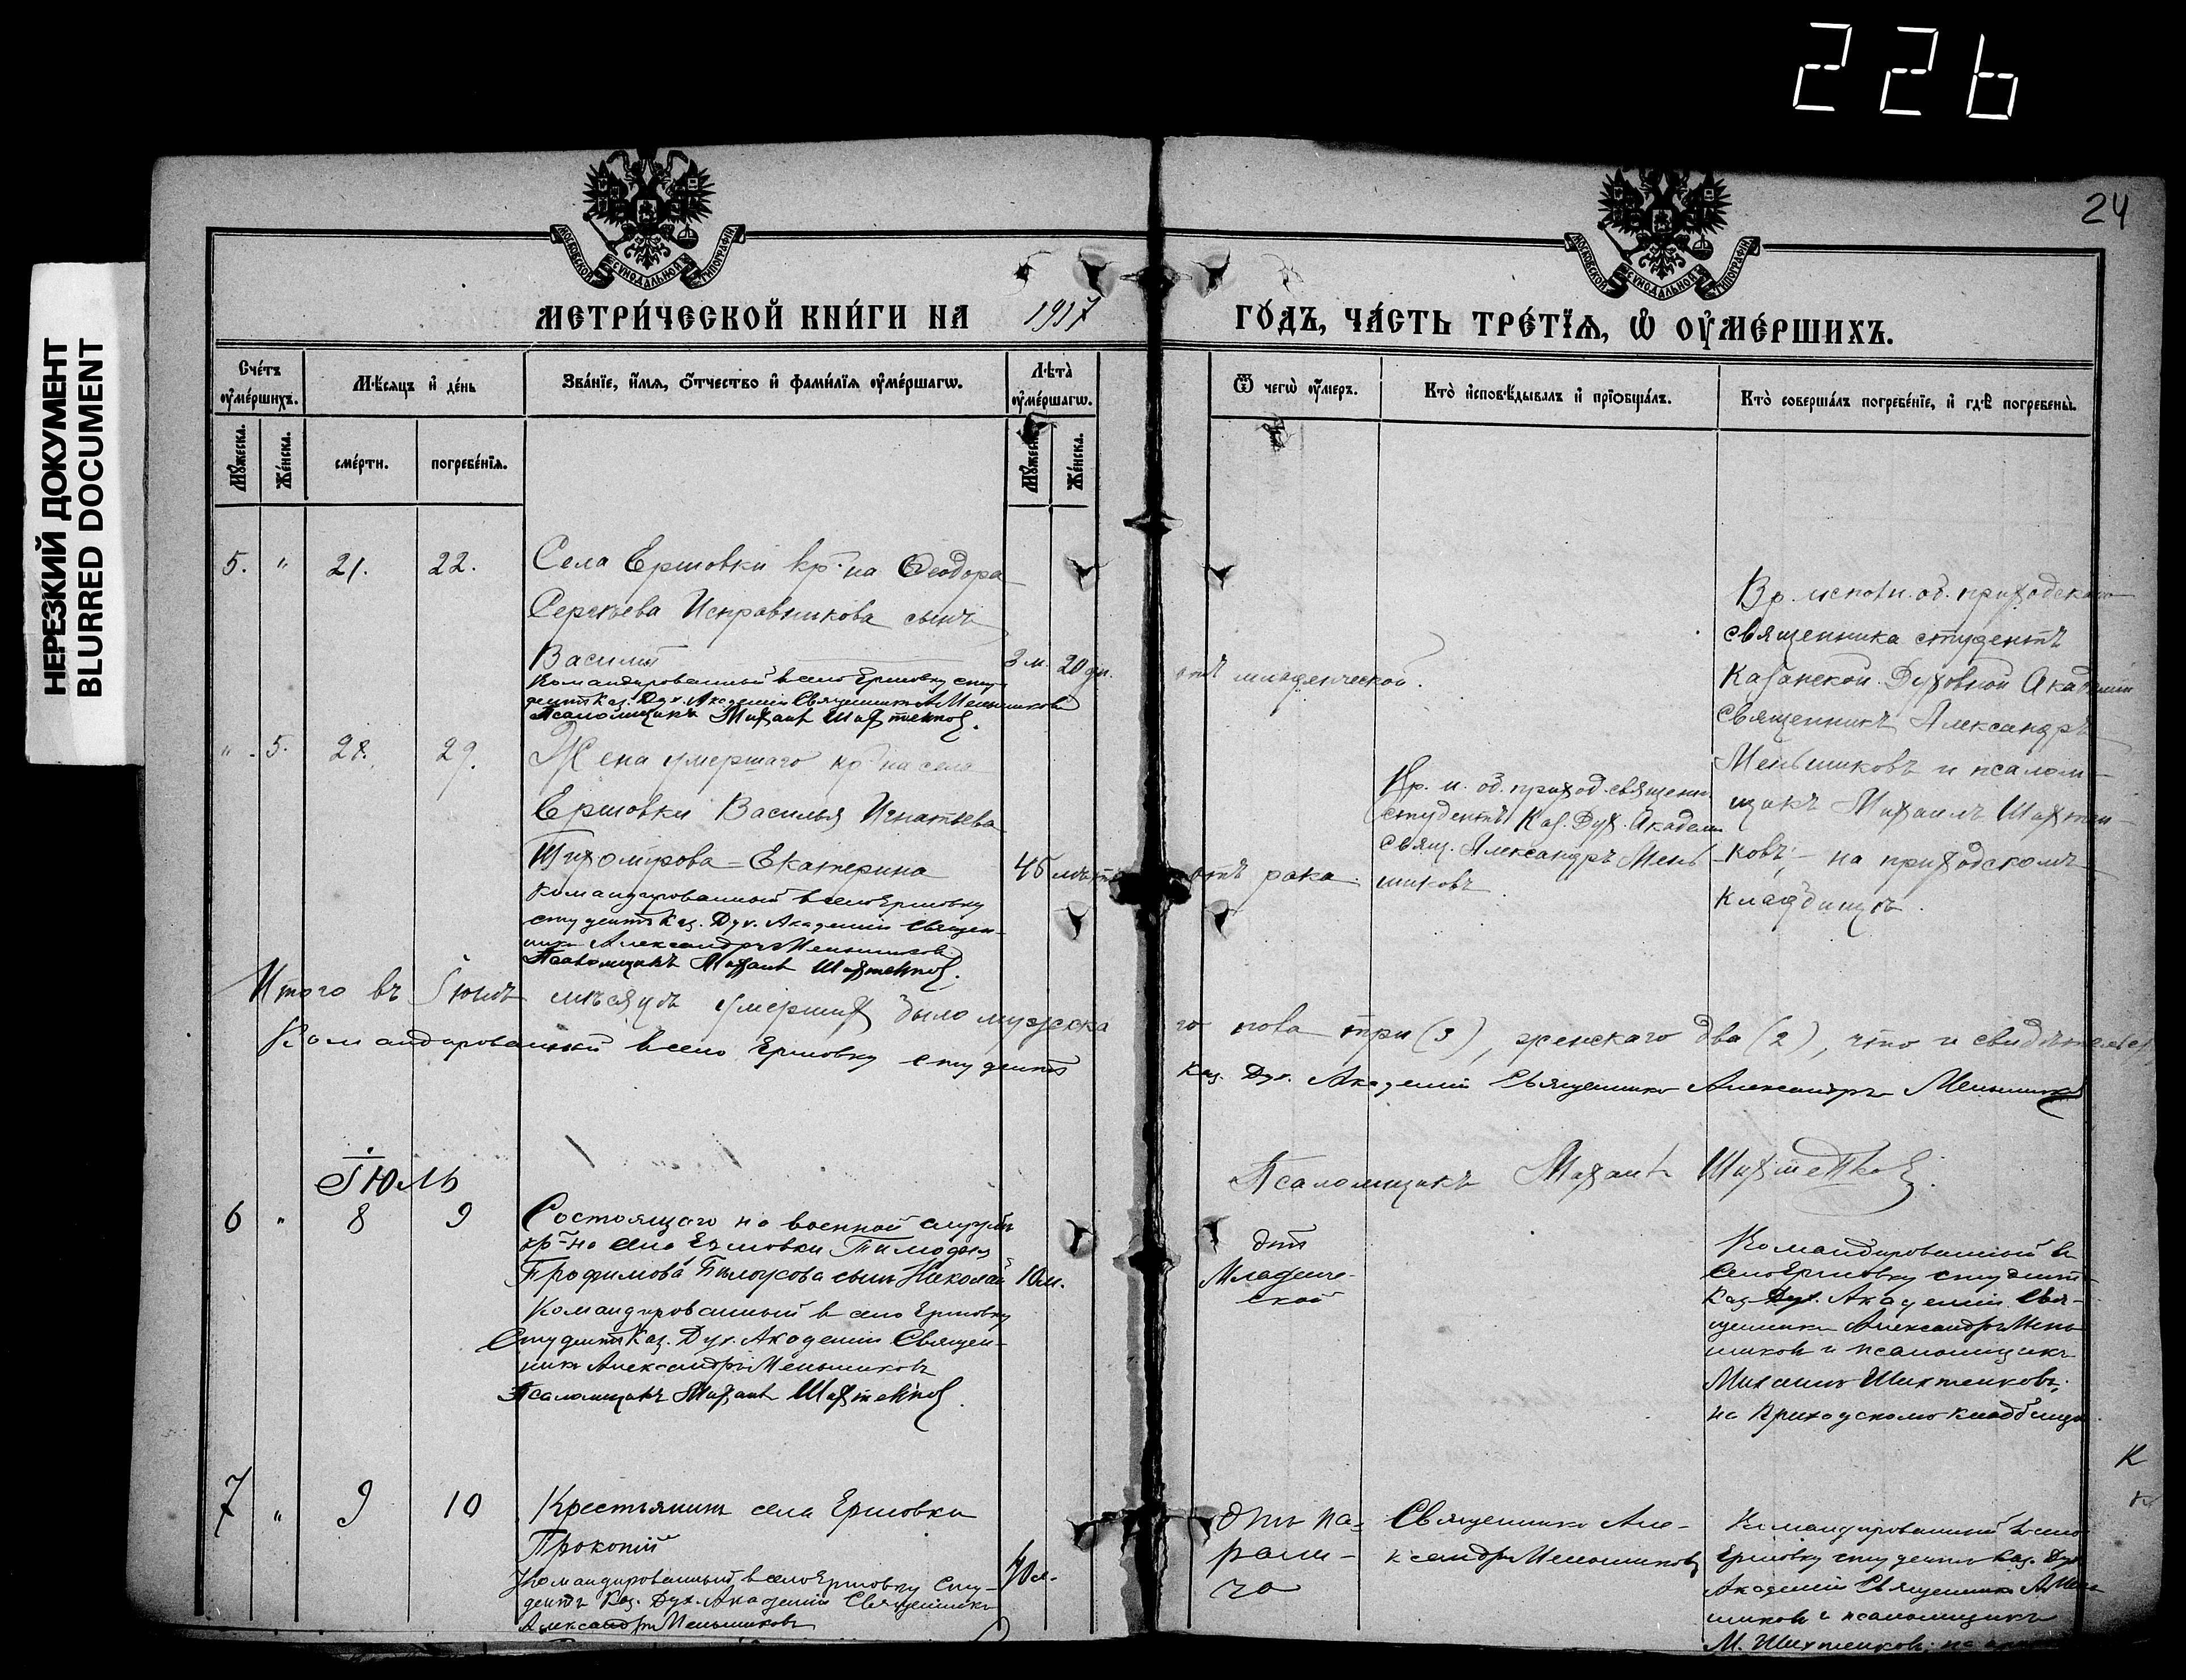 226
НЕРЕЗКИЙ ДОКУМЕНТ
BLURRED DOCUMENT
24
МОСКОВСКОЙ СѴНОДАЛЬНОЙ ТИПОГРАФІИ
МОСКОВСКОЙ СѴНОДАЛЬНОЙ ТИПОГРАФІИ
МЕТРИ́ЧЕСКОЙ КНИ́ГИ НА 1917 ГО́ДЪ, ЧА́СТЬ ТРЕ́ТЇѦ, Ѡ҆ ОУ҆МЕ́РШИХЪ.
Сче́тъ оу҆ме́ршихъ.
Мѣ́сѧцъ и҆ де́нь
Зва́нїе, и҆́мѧ, ѻ҆́тчество и҆ фами́лїѧ оу҆ме́ршагѡ.
Лѣта̀ оу҆ме́ршагѡ.
Ѿ чегѡ̀ оу҆́меръ.
Кто̀ и҆сповѣ́дывалъ и҆ прїѻбща́лъ.
Кто̀ соверша́лъ погребе́нїе, и҆ гдѣ̀ погребены̀.
Мꙋ́жеска.
Же́нска.
сме́рти.
погребе́нїѧ.
Мꙋ́жеска.
Же́нска.
5. " 21. 22.
Села Ершовки кр-на Ѳеодора
Сергѣева Исправникова сынъ
Василій 3 м. 20 дн.
Командированный въ село Ершовку сту-
дентъ Каз. Дух. Академіи Священникъ А Меньшиковъ
Псаломщикъ Михаилъ Шахтенков.
отъ младенческой.
Вр. исполн. об. приходскаго
священника студентъ
Казанской Духовной Академіи
священникъ Александръ
Меньшиковъ и псалом-
щикъ Михаилъ Шахтен-
ковъ; – на приходскомъ
кладбищѣ.
" 5. 28. 29.
Жена умершаго кр-на села
Ершовки Василья Игнатьева
Тихомирова = Екатерина 46 лѣтъ
Командированный въ село Ершовку
студентъ Каз. Дух. Академіи Священ-
никъ Александръ Меньшиковъ
Псаломщикъ Михаилъ Шахтенков.
отъ рака.
Вр. и. об. приход. священн.
студентъ Каз. Дух. Академіи
свящ. Александръ Мень
шиковъ
Итого въ Іюнѣ мѣсяцѣ умерших было мужска
го пола три (3), женскаго два (2), что и свидѣтельст
Командированный въ село Ершовку студентъ
Каз. Дух. Академіи Священникъ Александръ Меньшиковъ
Псаломщикъ Михаилъ Шахтенков.
Іюль
6 " 8 9
Состоящаго на военной службѣ
кр-на села Ершовки Тимофея
Трофимова Бѣлоусова сынъ Николай 10 м.
Командированный въ село Ершовку
Студентъ Каз. Дух. Академіи Священ-
никъ Александръ Меньшиковъ
Псаломщикъ Михаилъ Шахтенков.
отъ
Младенче-
ской
Командированный въ
село Ершовку студентъ
Каз. Дух. Академіи Свя-
щенникъ Александръ Мень
шиковъ и псаломщикъ
Михаилъ Шихтенковъ,
на приходскомъ кладбищѣ
7 " 9 10
Крестьянинъ села Ершовки
Прокопій
Командированный въ село Ершовку Сту-
дентъ Каз. Дух. Академіи Священникъ
Александръ Меньшиковъ
отъ па-
рали-
ча
Священникъ Але-
ксандръ Меньшиковъ
Командированный въ село
Ершовку студентъ Каз. Дух
Академіи Священникъ А Мень
шиковъ и псаломщикъ
М. Шихтенковъ;
К